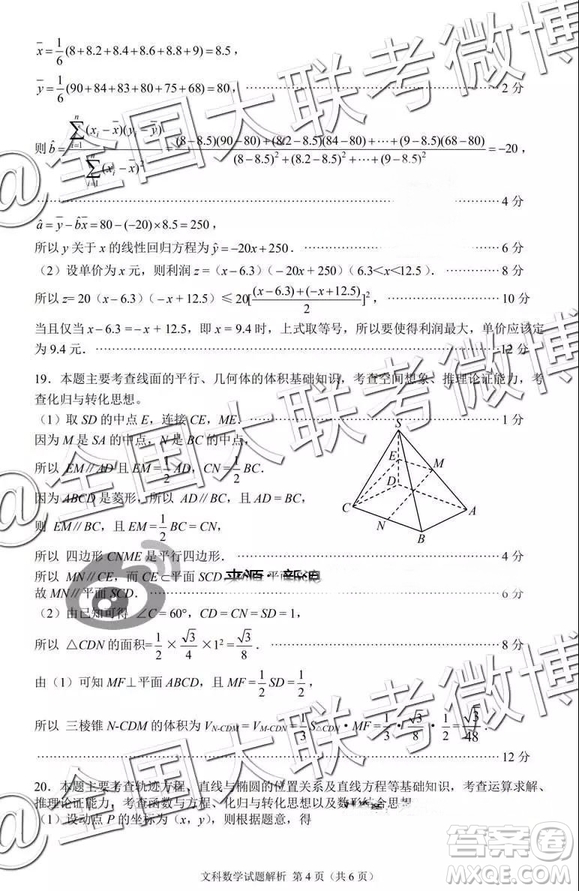 x̄ = 1/6(8+8.2+8.4+8.6+8.8+9) = 8.5，
ȳ = 1/6(90+84+83+80+75+68) = 80， 2 分
则 b̂ = ∑ⁿᵢ₌₁(xᵢ－x̄)(yᵢ－ȳ) / ∑ⁿᵢ₌₁(xᵢ－x̄)² = (8－8.5)(90－80)+(8.2－8.5)(84－80)+⋯+(9－8.5)(68－80) / (8－8.5)²+(8.2－8.5)²+⋯+(9－8.5)² = －20，
4 分
â = ȳ－b̂x̄ = 80－(－20)×8.5 = 250，
所以 y 关于 x 的线性回归方程为 ŷ = －20x + 250． 6 分
（2）设单价为 x 元，则利润 z =（x－6.3）(－20x + 250)（6.3＜x＜12.5）． 8 分
所以 z= 20（x－6.3）（－x + 12.5）≤ 20[((x－6.3)+(－x+12.5))/2]²， 10 分
当且仅当 x－6.3 =－x + 12.5，即 x = 9.4 时，上式取等号，所以要使得利润最大，单价应该定
为 9.4 元． 12 分
19．本题主要考查线面的平行、几何体的体积基础知识，考查空间想象、推理论证能力，考
查化归与转化思想。
（1）取 SD 的中点 E，连接 CE，ME． 1 分
因为 M 是 SA 的中点，N 是 BC 的中点，
所以 EM // AD 且 EM = 1/2 AD，CN = 1/2 BC．
因为 ABCD 是菱形，所以 AD // BC，且 AD = BC，
则 EM // BC，且 EM = 1/2 BC = CN，
所以 四边形 CNME 是平行四边形． 4 分
所以 MN // CE，而 CE ⊂ 平面 SCD 平面
故 MN // 平面 SCD． 6 分
S
E
M
D
C
A
N
B
（2）由已知可得 ∠C = 60°，CD = CN = SD = 1，
所以 △CDN 的面积= 1/2 × √3/4 × 1² = √3/8． 8 分
由（1）可知 MF⊥平面 ABCD，且 MF = 1/2 SD = 1/2，
所以 三棱锥 N-CDM 的体积为 V_N-CDM = V_M-CDN = 1/3 S△CDN · MF = 1/3 · √3/8 · 1/2 = √3/48．
12 分
20．本题主要考查轨迹方程，直线与椭圆的位置关系及直线方程等基础知识，考查运算求解、
推理论证能力，考查函数与方程、化归与转化思想以及数 合思想
（1）设动点 P 的坐标为（x，y），则根据题意，得
文科数学试题解析 第 4 页（共 6 页）
@全国大联考微博
@全国大联考微博
@全国大联考微博
答案圈
MXQE.COM